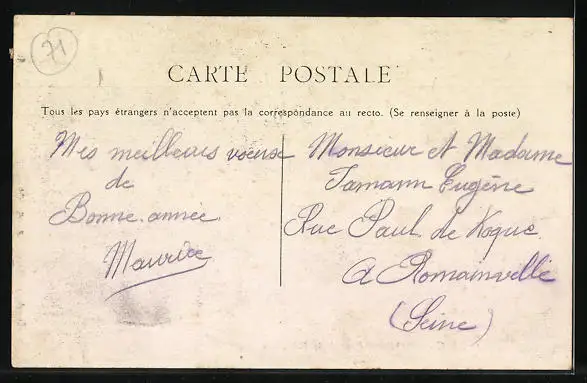 71
CARTE POSTALE
Tous les pays étrangers n'acceptent pas la correspondance au recto. (Se renseigner à la poste)
Mes meilleurs voeux
de
Bonne année
Maurice
Monsieur et Madame
Tamann Eugène
Rue Paul de Koque
à Romainville
(Seine)